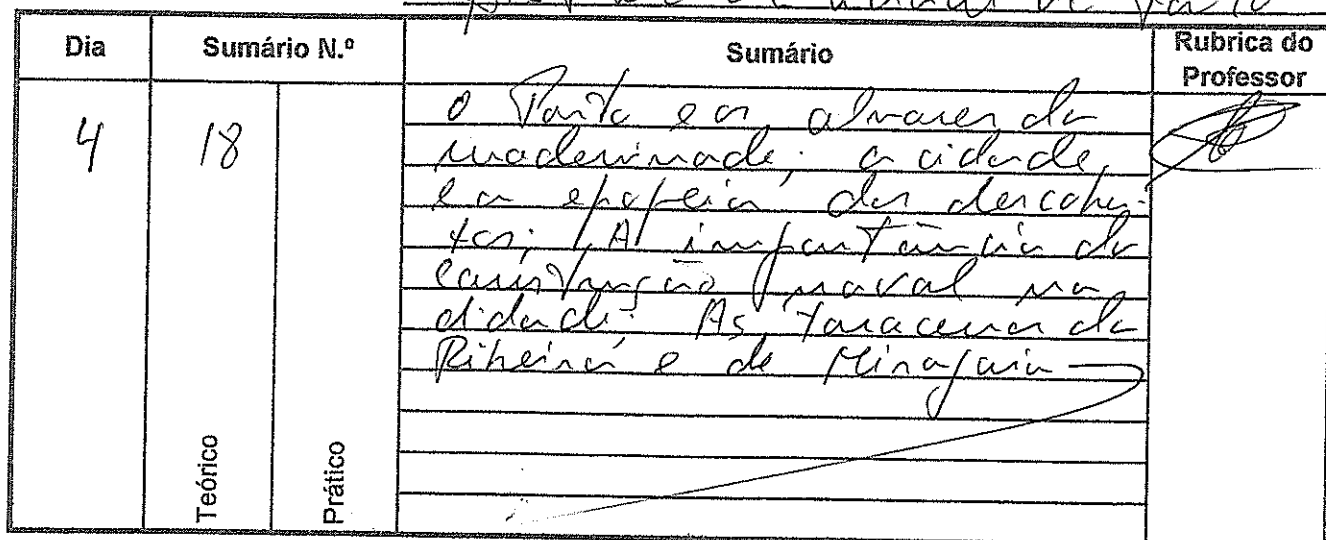 Dia
Sumário N.º
Sumário
Rubrica do
Professor
4
18
O Porto e os alvores da
modernidade: a cidade
e a epopeia dos descobri-
tos; A importância da
construção naval na
cidade. As taracenas da
Ribeira e de Miragaia
Teórico
Prático